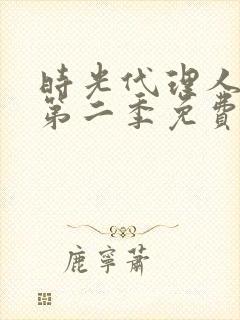 時光代理人
第二季免費
鹿寧蕭